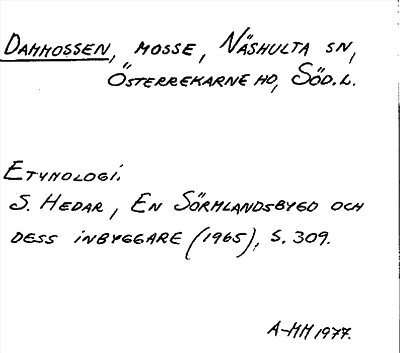 DAMMOSSEN, MOSSE, NÄSHULTA SN,
ÖSTERREKARNE HD, SÖD.L.
ETYMOLOGI:
S. HEDAR, EN SÖRMLANDSBYGD OCH
DESS INBYGGARE (1965), S. 309.
A-MH 1977.